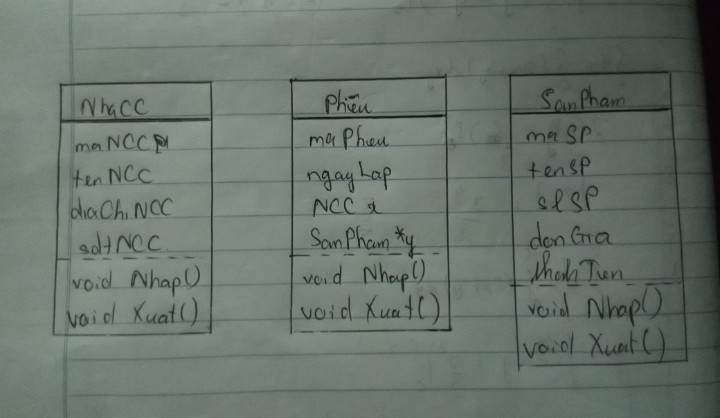 NhaCC
maNCC
tenNCC
diaChiNCC
sdtNCC
void Nhap()
void Xuat()
Phiếu
maPhieu
ngayLap
NCC x
SanPham *y
void Nhap()
void Xuat()
SanPham
maSP
tenSP
slSP
donGia
thanhTien
void Nhap()
void Xuat()